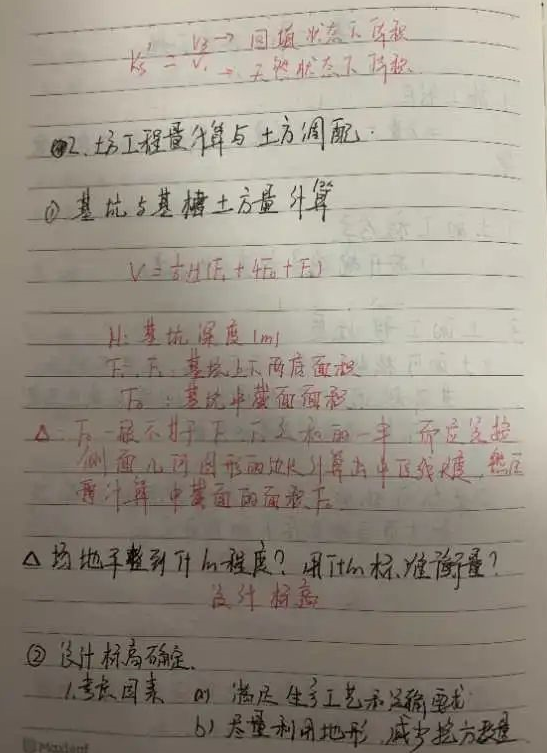 Ks' = V3/V1 → 回填状态下体积
→ 天然状态下体积
2、土方工程量计算与土方调配.
① 基坑与基槽土方量计算
V = 1/6 H (F1 + 4F0 + F2)
H: 基坑深度(m)
F1、F2: 基坑上下两底面积
F0 : 基坑中截面面积
△: F0一般不等于F1、F2之和的一半,而应先按
侧面几何图形的边长计算出中位线长度,然后
再计算中截面的面积F0
△ 场地平整到什么程度?用什么标准衡量?
设计标高
② 设计标高确定.
1.考虑因素 a) 满足生产工艺和运输要求
b) 尽量利用地形,减少挖方数量